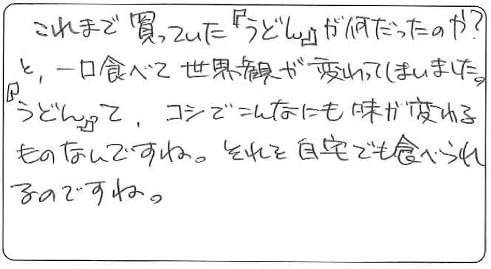 これまで買っていた『うどん』が何だったのか?
と、一口食べて世界観が変わってしまいました。
『うどん』って、コシでこんなにも味が変わる
ものなんですね。それを自宅でも食べられ
るのですね。